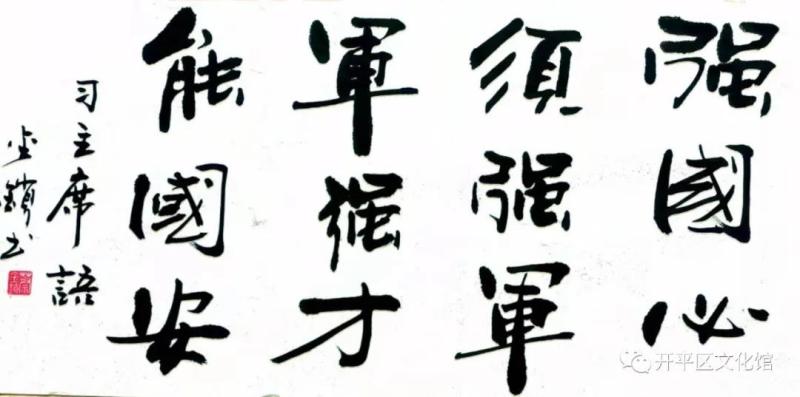 强國必
須强軍
軍强才
能國安
习主席語
书
开平区文化馆